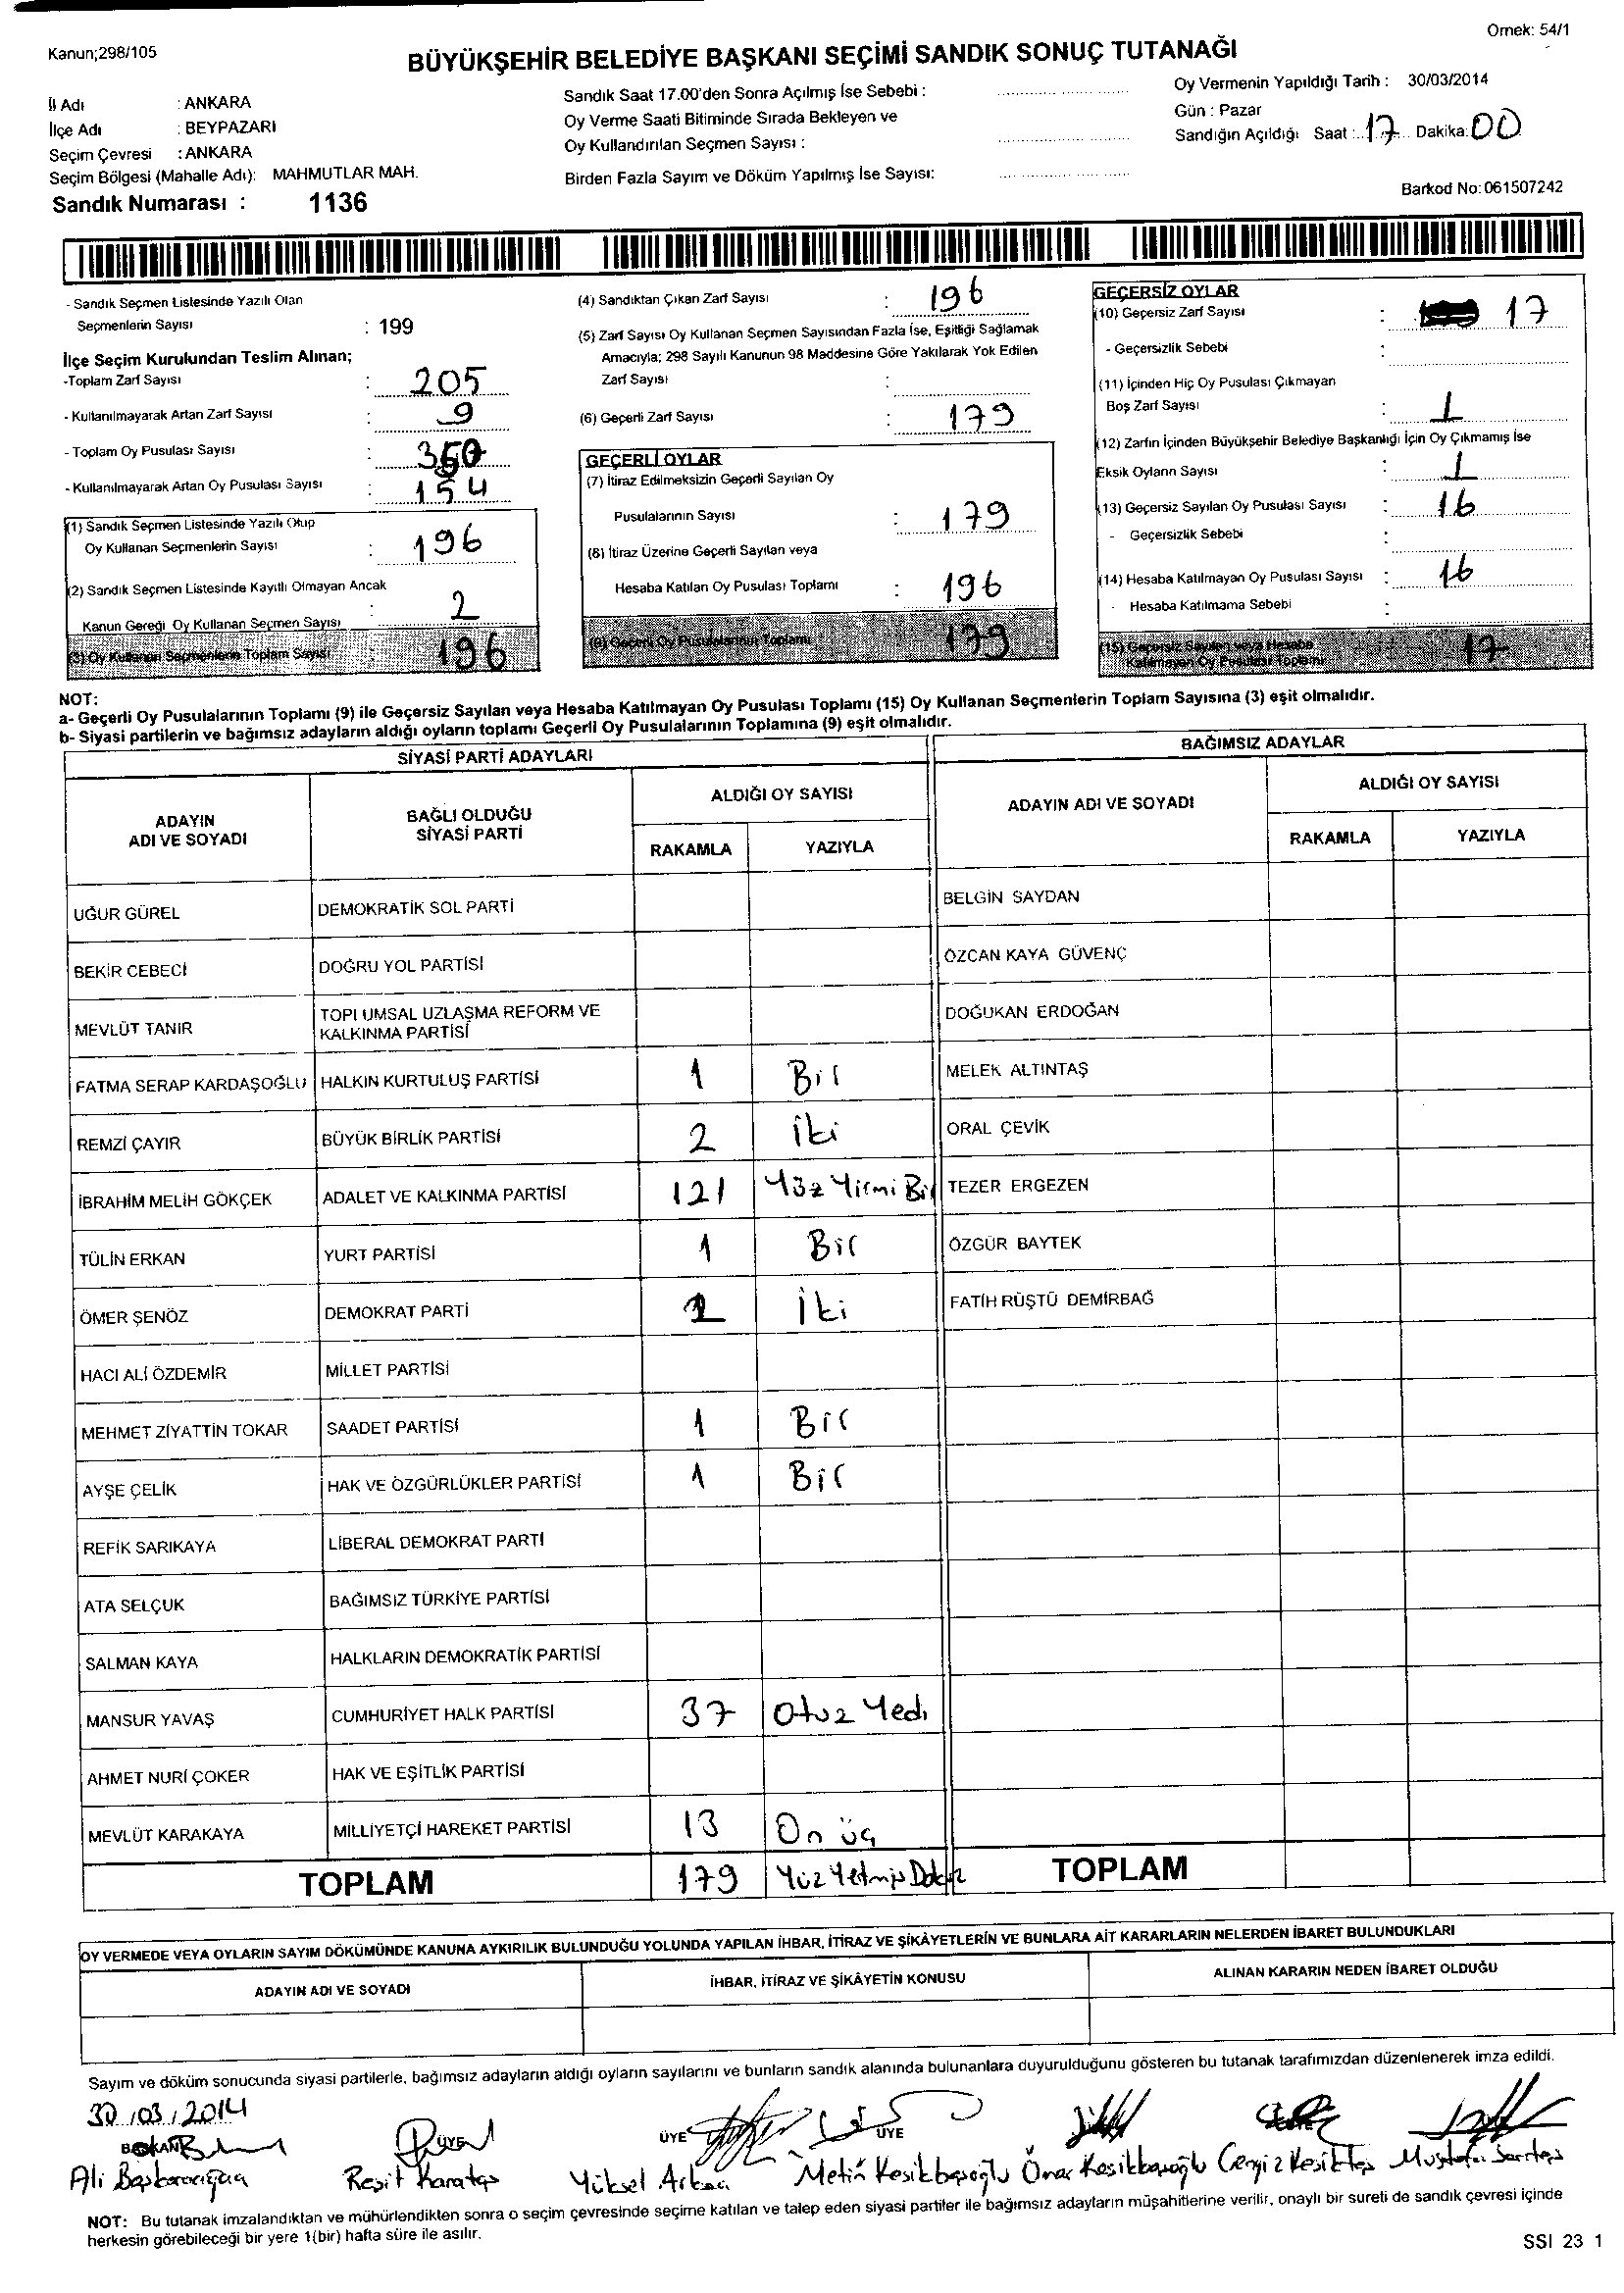 Örnek: 54/1
Kanun;298/105
BÜYÜKŞEHİR BELEDİYE BAŞKANI SEÇİMİ SANDIK SONUÇ TUTANAĞI
İl Adı : ANKARA
İlçe Adı : BEYPAZARI
Seçim Çevresi : ANKARA
Seçim Bölgesi (Mahalle Adı): MAHMUTLAR MAH.
Sandık Numarası : 1136
Sandık Saat 17.00'den Sonra Açılmış İse Sebebi :
Oy Verme Saati Bitiminde Sırada Bekleyen ve
Oy Kullandırılan Seçmen Sayısı :
Birden Fazla Sayım ve Döküm Yapılmış İse Sayısı:
Oy Vermenin Yapıldığı Tarih : 30/03/2014
Gün : Pazar
Sandığın Açıldığı Saat : 17 Dakika: 00
Barkod No: 061507242
- Sandık Seçmen Listesinde Yazılı Olan
Seçmenlerin Sayısı : 199
İlçe Seçim Kurulundan Teslim Alınan;
-Toplam Zarf Sayısı : 205
- Kullanılmayarak Artan Zarf Sayısı : 9
- Toplam Oy Pusulası Sayısı : 350
- Kullanılmayarak Artan Oy Pusulası Sayısı : 154
(1) Sandık Seçmen Listesinde Yazılı Olup
Oy Kullanan Seçmenlerin Sayısı : 196
(2) Sandık Seçmen Listesinde Kayıtlı Olmayan Ancak
Kanun Gereği Oy Kullanan Seçmen Sayısı : 2
(3) Oy Kullanan Seçmenlerin Toplam Sayısı : 196
(4) Sandıktan Çıkan Zarf Sayısı : 196
(5) Zarf Sayısı Oy Kullanan Seçmen Sayısından Fazla İse, Eşitliği Sağlamak
Amacıyla; 298 Sayılı Kanunun 98 Maddesine Göre Yakılarak Yok Edilen
Zarf Sayısı :
(6) Geçerli Zarf Sayısı : 179
GEÇERLİ OYLAR
(7) İtiraz Edilmeksizin Geçerli Sayılan Oy
Pusulalarının Sayısı : 179
(8) İtiraz Üzerine Geçerli Sayılan veya
Hesaba Katılan Oy Pusulası Toplamı : 196
(9) Geçerli Oy Pusulalarının Toplamı 179
GEÇERSİZ OYLAR
(10) Geçersiz Zarf Sayısı : 17
- Geçersizlik Sebebi :
(11) İçinden Hiç Oy Pusulası Çıkmayan
Boş Zarf Sayısı : 1
(12) Zarfın İçinden Büyükşehir Belediye Başkanlığı İçin Oy Çıkmamış İse
Eksik Oyların Sayısı : 1
(13) Geçersiz Sayılan Oy Pusulası Sayısı : 16
- Geçersizlik Sebebi :
(14) Hesaba Katılmayan Oy Pusulası Sayısı : 16
- Hesaba Katılmama Sebebi :
(15) Geçersiz Sayılan veya Hesaba
Katılmayan Oy Pusulası Toplamı 17
NOT:
a- Geçerli Oy Pusulalarının Toplamı (9) ile Geçersiz Sayılan veya Hesaba Katılmayan Oy Pusulası Toplamı (15) Oy Kullanan Seçmenlerin Toplam Sayısına (3) eşit olmalıdır.
b- Siyasi partilerin ve bağımsız adayların aldığı oyların toplamı Geçerli Oy Pusulalarının Toplamına (9) eşit olmalıdır.
SİYASİ PARTİ ADAYLARI
BAĞIMSIZ ADAYLAR
ADAYIN ADI VE SOYADI BAĞLI OLDUĞU SİYASİ PARTİ ALDIĞI OY SAYISI ADAYIN ADI VE SOYADI ALDIĞI OY SAYISI
RAKAMLA YAZIYLA RAKAMLA YAZIYLA
UĞUR GÜREL DEMOKRATİK SOL PARTİ BELGİN SAYDAN
BEKİR CEBECİ DOĞRU YOL PARTİSİ ÖZCAN KAYA GÜVENÇ
MEVLÜT TANIR TOPLUMSAL UZLAŞMA REFORM VE KALKINMA PARTİSİ DOĞUKAN ERDOĞAN
FATMA SERAP KARDAŞOĞLU HALKIN KURTULUŞ PARTİSİ 1 Bir MELEK ALTINTAŞ
REMZİ ÇAYIR BÜYÜK BİRLİK PARTİSİ 2 İki ORAL ÇEVİK
İBRAHİM MELİH GÖKÇEK ADALET VE KALKINMA PARTİSİ 121 Yüz Yirmi Bir TEZER ERGEZEN
TÜLİN ERKAN YURT PARTİSİ 1 Bir ÖZGÜR BAYTEK
ÖMER ŞENÖZ DEMOKRAT PARTİ 2 İki FATİH RÜŞTÜ DEMİRBAĞ
HACI ALİ ÖZDEMİR MİLLET PARTİSİ
MEHMET ZİYATTİN TOKAR SAADET PARTİSİ 1 Bir
AYŞE ÇELİK HAK VE ÖZGÜRLÜKLER PARTİSİ 1 Bir
REFİK SARIKAYA LİBERAL DEMOKRAT PARTİ
ATA SELÇUK BAĞIMSIZ TÜRKİYE PARTİSİ
SALMAN KAYA HALKLARIN DEMOKRATİK PARTİSİ
MANSUR YAVAŞ CUMHURİYET HALK PARTİSİ 37 Otuz Yedi
AHMET NURİ ÇOKER HAK VE EŞİTLİK PARTİSİ
MEVLÜT KARAKAYA MİLLİYETÇİ HAREKET PARTİSİ 13 On üç
TOPLAM 179 Yüz Yetmiş Dokuz TOPLAM
OY VERMEDE VEYA OYLARIN SAYIM DÖKÜMÜNDE KANUNA AYKIRILIK BULUNDUĞU YOLUNDA YAPILAN İHBAR, İTİRAZ VE ŞİKÂYETLERİN VE BUNLARA AİT KARARLARIN NELERDEN İBARET BULUNDUKLARI
ADAYIN ADI VE SOYADI İHBAR, İTİRAZ VE ŞİKÂYETİN KONUSU ALINAN KARARIN NEDEN İBARET OLDUĞU
Sayım ve döküm sonucunda siyasi partilerle, bağımsız adayların aldığı oyların sayılarını ve bunların sandık alanında bulunanlara duyurulduğunu gösteren bu tutanak tarafımızdan düzenlenerek imza edildi.
30/03/2014
BAŞKAN ÜYE ÜYE ÜYE
Ali Reşit Karataş Yüksel Metin Kesikbaşoğlu Ömer Kesikbaşoğlu Cengiz Kesiktaş Mustafa Sarıtaş
NOT: Bu tutanak imzalandıktan ve mühürlendikten sonra o seçim çevresinde seçime katılan ve talep eden siyasi partiler ile bağımsız adayların müşahitlerine verilir, onaylı bir sureti de sandık çevresi içinde
herkesin görebileceği bir yere 1(bir) hafta süre ile asılır.
SSI 23 1